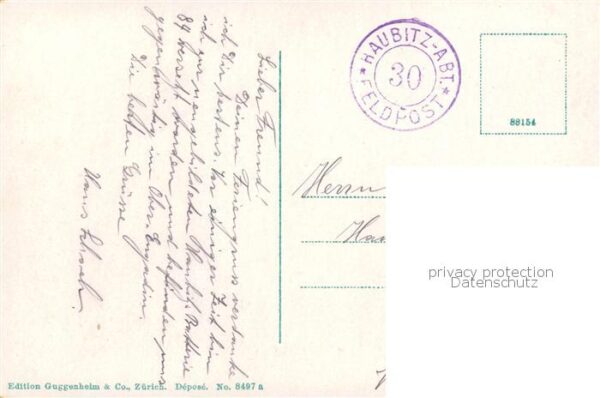 Lieber Freund!
Deinen Feriengruss verdanke
ich Dir bestens. Vor einiger Zeit bin
ich zur neugebildeten Haubitz Batterie
84 versetzt worden und befinden uns
gegenwärtig im Ober-Engadin.
Die besten Grüsse
Hans
* HAUBITZ-ABT. *
30
FELDPOST
88154
Herrn
privacy protection
Datenschutz
Edition Guggenheim & Co., Zürich. Déposé. No. 8497 a